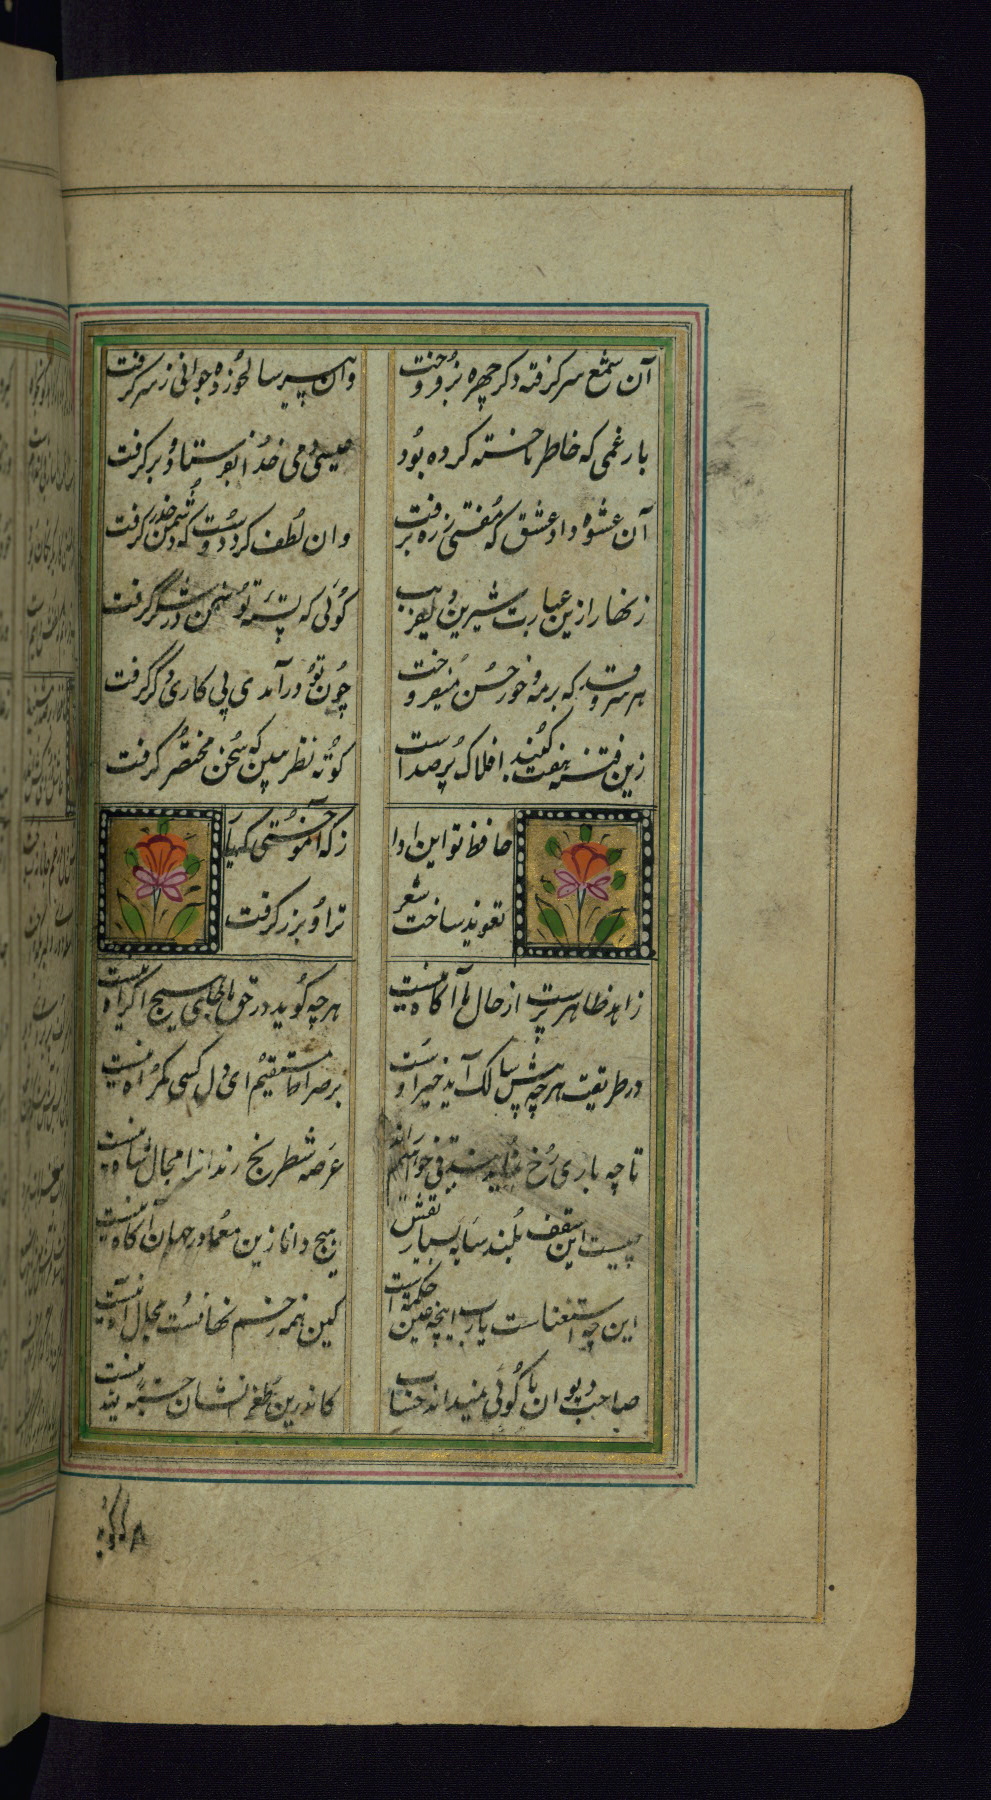 آن شمع سر گرفته دگر چهره بر فروخت وان پیر سالخورده جوانی ز سر گرفت
بار غمی که خاطر ما خسته کرده بود عیسی دمی خدا بفرستاد و بر گرفت
آن عشوه داد عشق که مفتی ز ره برفت وان لطف کرد دوست که دشمن حذر گرفت
زنهار ازین عبارت شیرین دلفریب گوئی که پسته تو سخن در شکر گرفت
هر سرو قد که بر مه و خور حسن میفروخت چون تو در آمدی پی کاری دگر گرفت
زین قصه هفت گنبد افلاک پر صداست کوته نظر ببین که سخن مختصر گرفت
حافظ تو این دعا ز که آموختی که یار
تعوید ساخت شعر ترا و بزر گرفت
زاهد ظاهر پرست از حال ما آگاه نیست هر چه گوید در حق ما جای هیچ اکراه نیست
در طریقت هر چه پیش سالک آید خیر اوست بر صراط مستقیم ای دل کسی گمراه نیست
تا چه بازی رخ نماید بیدقی خواهیم راند عرصه شطرنج رندانرا مجال شاه نیست
چیست این سقف بلند ساده بسیار نقش هیچ دانا زین معما در جهان آگاه نیست
این چه استغناست یارب اینچه عین حکمت است کین همه زخم نهانست مجال آه نیست
صاحب دیوان ما گوئی نمیداند حساب کاندرین طغرا نشان حسبة لله نیست
هر که گو